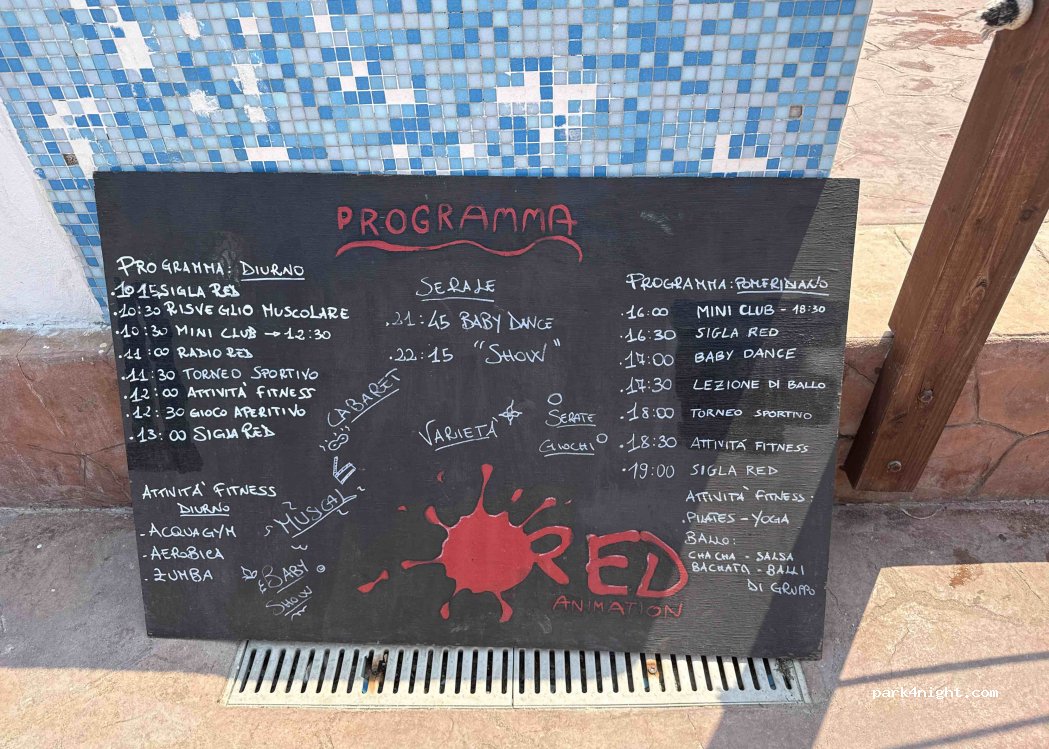 PROGRAMMA
PROGRAMMA: DIURNO
10:15 SIGLA RED
·10:30 RISVEGLIO MUSCOLARE
·10:30 MINI CLUB → 12:30
·11:00 RADIO RED
·11:30 TORNEO SPORTIVO
·12:00 ATTIVITÀ FITNESS
·12:30 GIOCO APERITIVO
·13:00 SIGLA RED
ATTIVITÀ FITNESS
DIURNO
·ACQUAGYM
·AEROBICA
·ZUMBA
SERALE
·21:45 BABY DANCE
·22:15 "SHOW"
CABARET
VARIETÀ
SERATE
GIOCHI
MUSICAL
BABY
SHOW
PROGRAMMA: POMERIDIANO
·16:00 MINI CLUB - 18:30
·16:30 SIGLA RED
·17:00 BABY DANCE
·17:30 LEZIONE DI BALLO
·18:00 TORNEO SPORTIVO
·18:30 ATTIVITÀ FITNESS
·19:00 SIGLA RED
ATTIVITÀ FITNESS:
·PILATES - YOGA
BALLO:
CHA CHA - SALSA
BACHATA - BALLI
DI GRUPPO
RED
ANIMATION
park4night.com